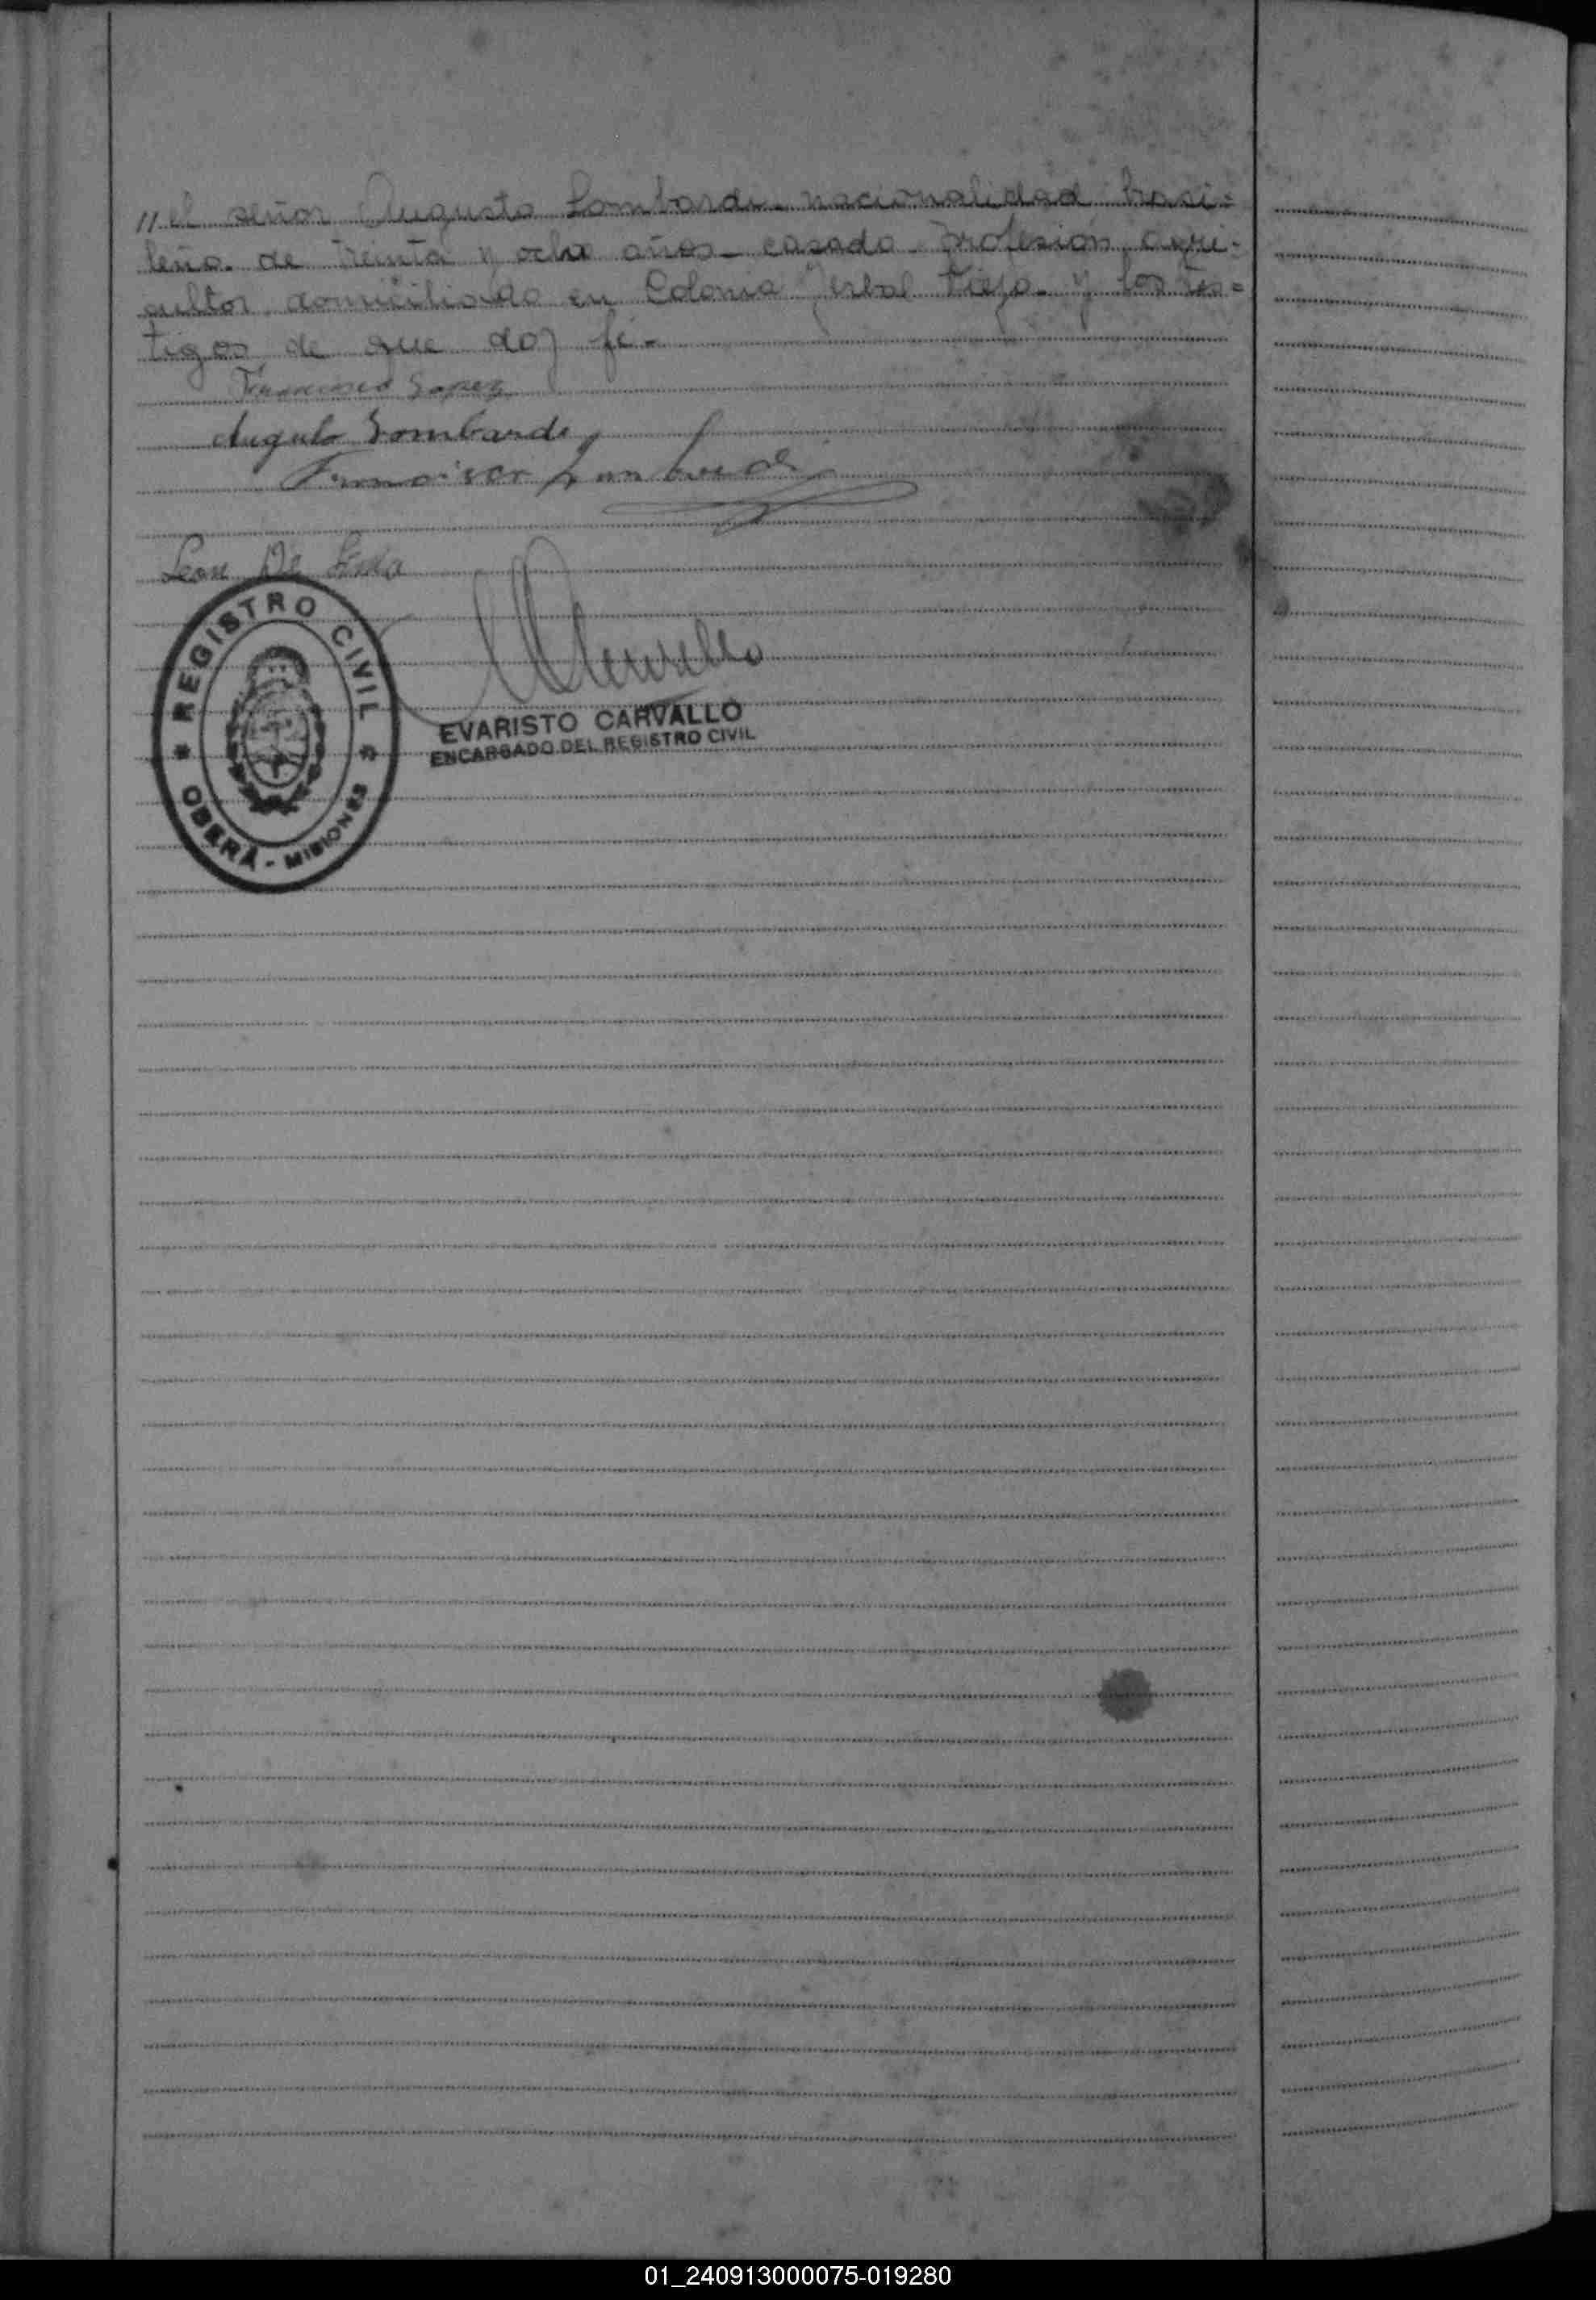 // el señor Augusto Lombardi - nacionalidad brasi=
leña de treinta y ocho años - casado profesión agri-
cultor domiciliado en Colonia Yerbal Viejo - y los tes=
tigos de que doy fé -
Francisco Lopez
Augusto Lombardi
Francisco Lombardi
Leon De
REGISTRO CIVIL
OBERÁ - MISIONES
EVARISTO CARVALLO
ENCARGADO DEL REGISTRO CIVIL
01_240913000075-019280